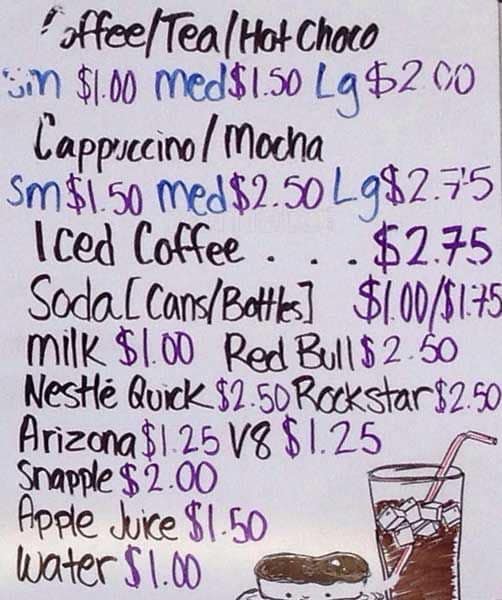 Coffee/Tea/Hot Choco
sm $1.00 med $1.50 Lg $2.00
Cappuccino/Mocha
sm $1.50 med $2.50 Lg $2.75
Iced Coffee . . . . $2.75
Soda [Cans/Bottles] $1.00/$1.75
milk $1.00 Red Bull $2.50
Nestlé Quick $2.50 Rockstar $2.50
Arizona $1.25 V8 $1.25
Snapple $2.00
Apple Juice $1.50
Water $1.00